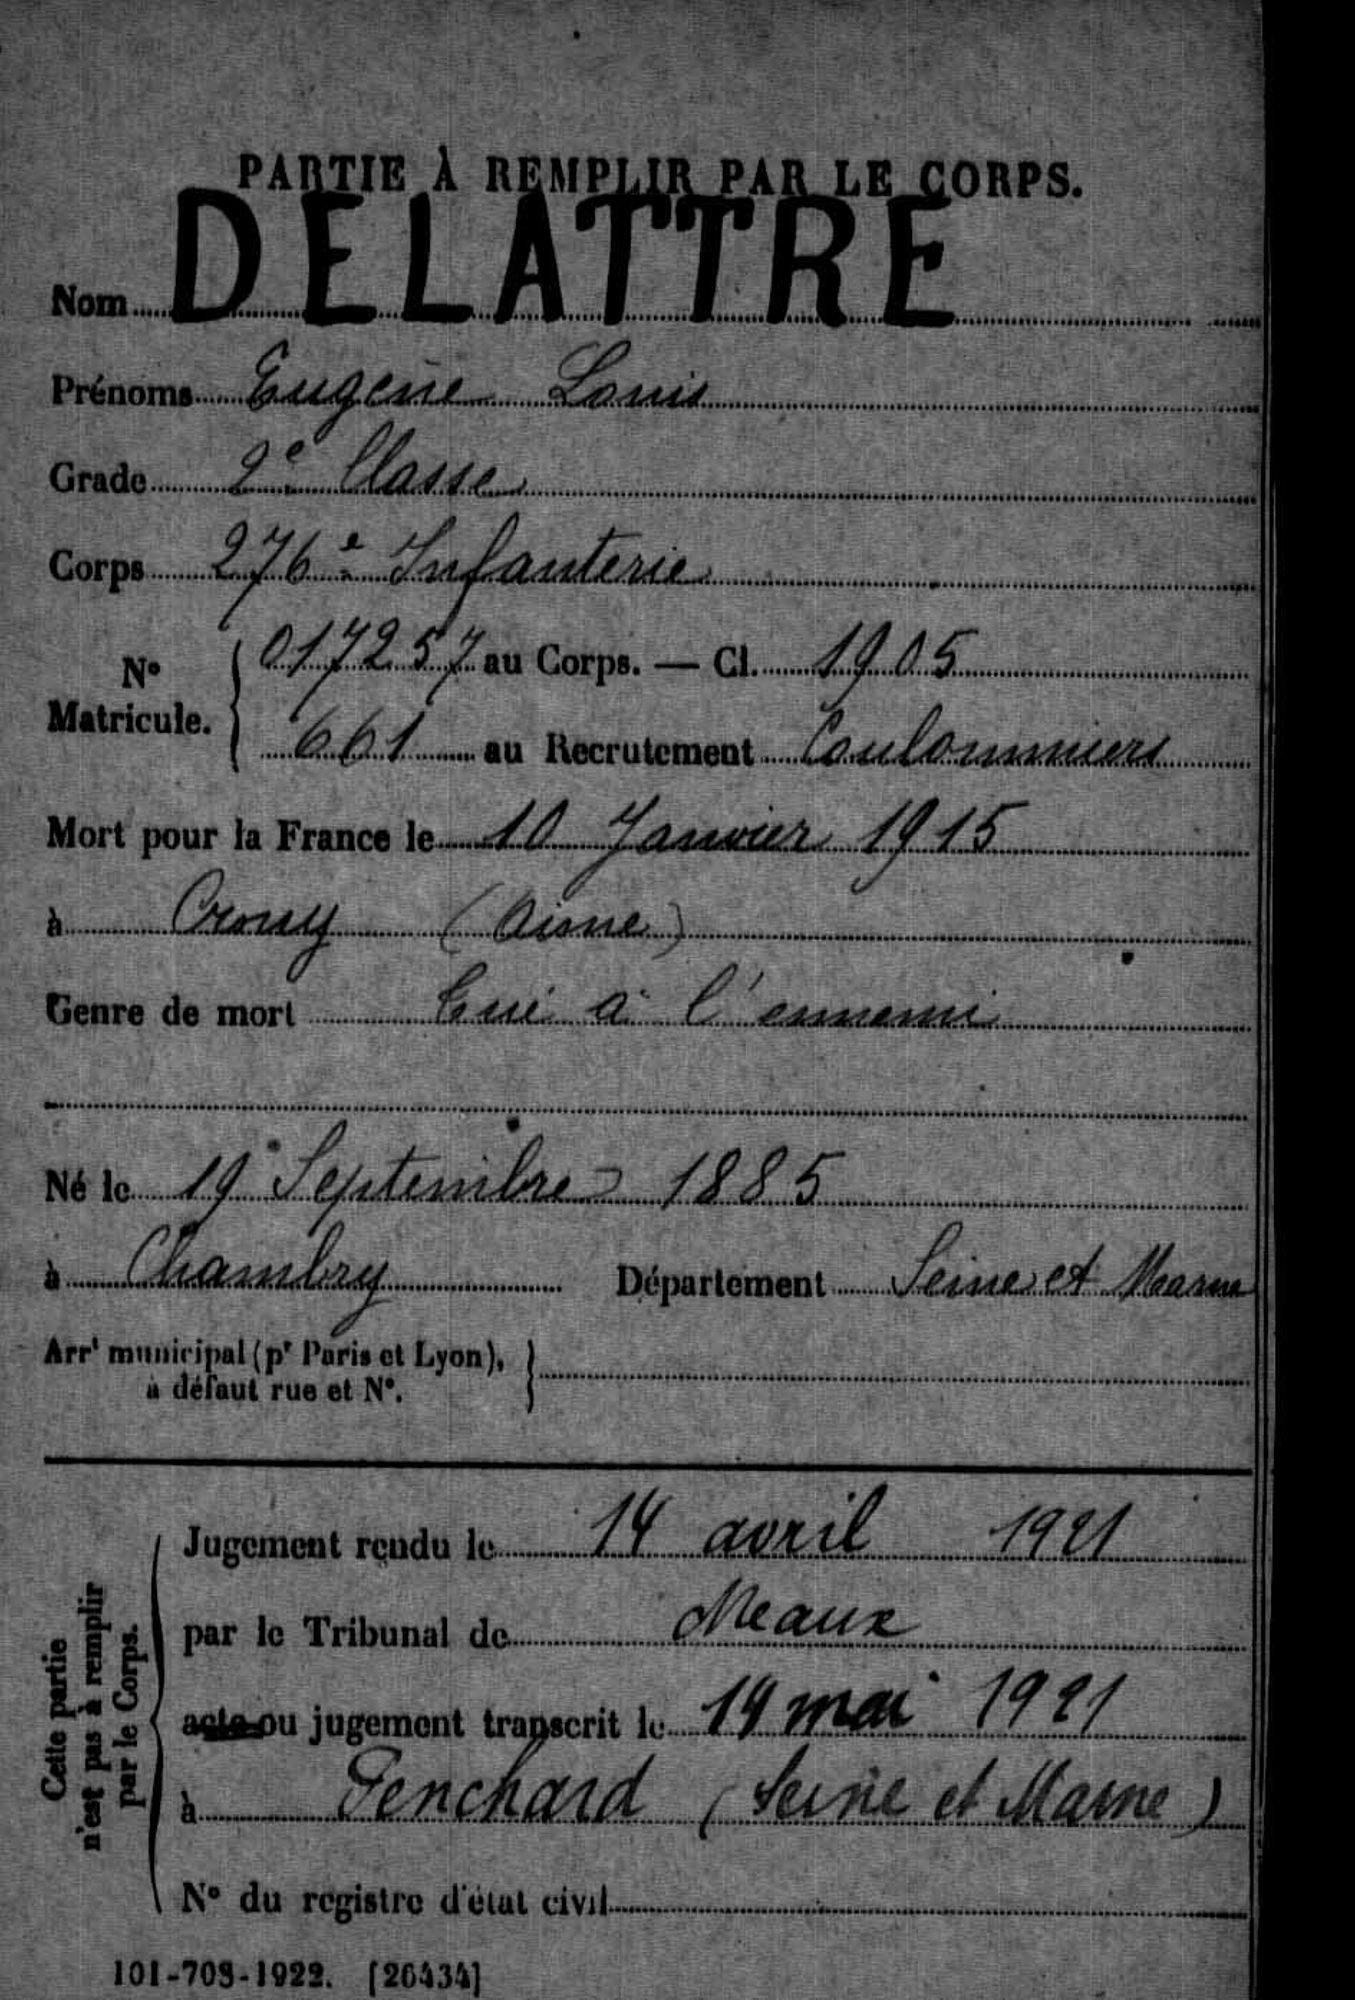 PARTIE À REMPLIR PAR LE CORPS.
Nom DELATTRE
Prénoms Eugène Louis
Grade 2e Classe
Corps 276e Infanterie
No Matricule. 017257 au Corps. — Cl. 1905
661 au Recrutement Coulommiers
Mort pour la France le 10 Janvier 1915
à Crouy (Aisne)
Genre de mort Tué à l'ennemi
Né le 19 Septembre 1885
à Chambry Département Seine et Marne
Arrt municipal (pr Paris et Lyon),
à défaut rue et No.
Cette partie
n'est pas à remplir
par le Corps.
Jugement rendu le 14 avril 1921
par le Tribunal de Meaux
acte ou jugement transcrit le 14 mai 1921
à Penchard (Seine et Marne)
No du registre d'état civil
101-708-1922. [26434]